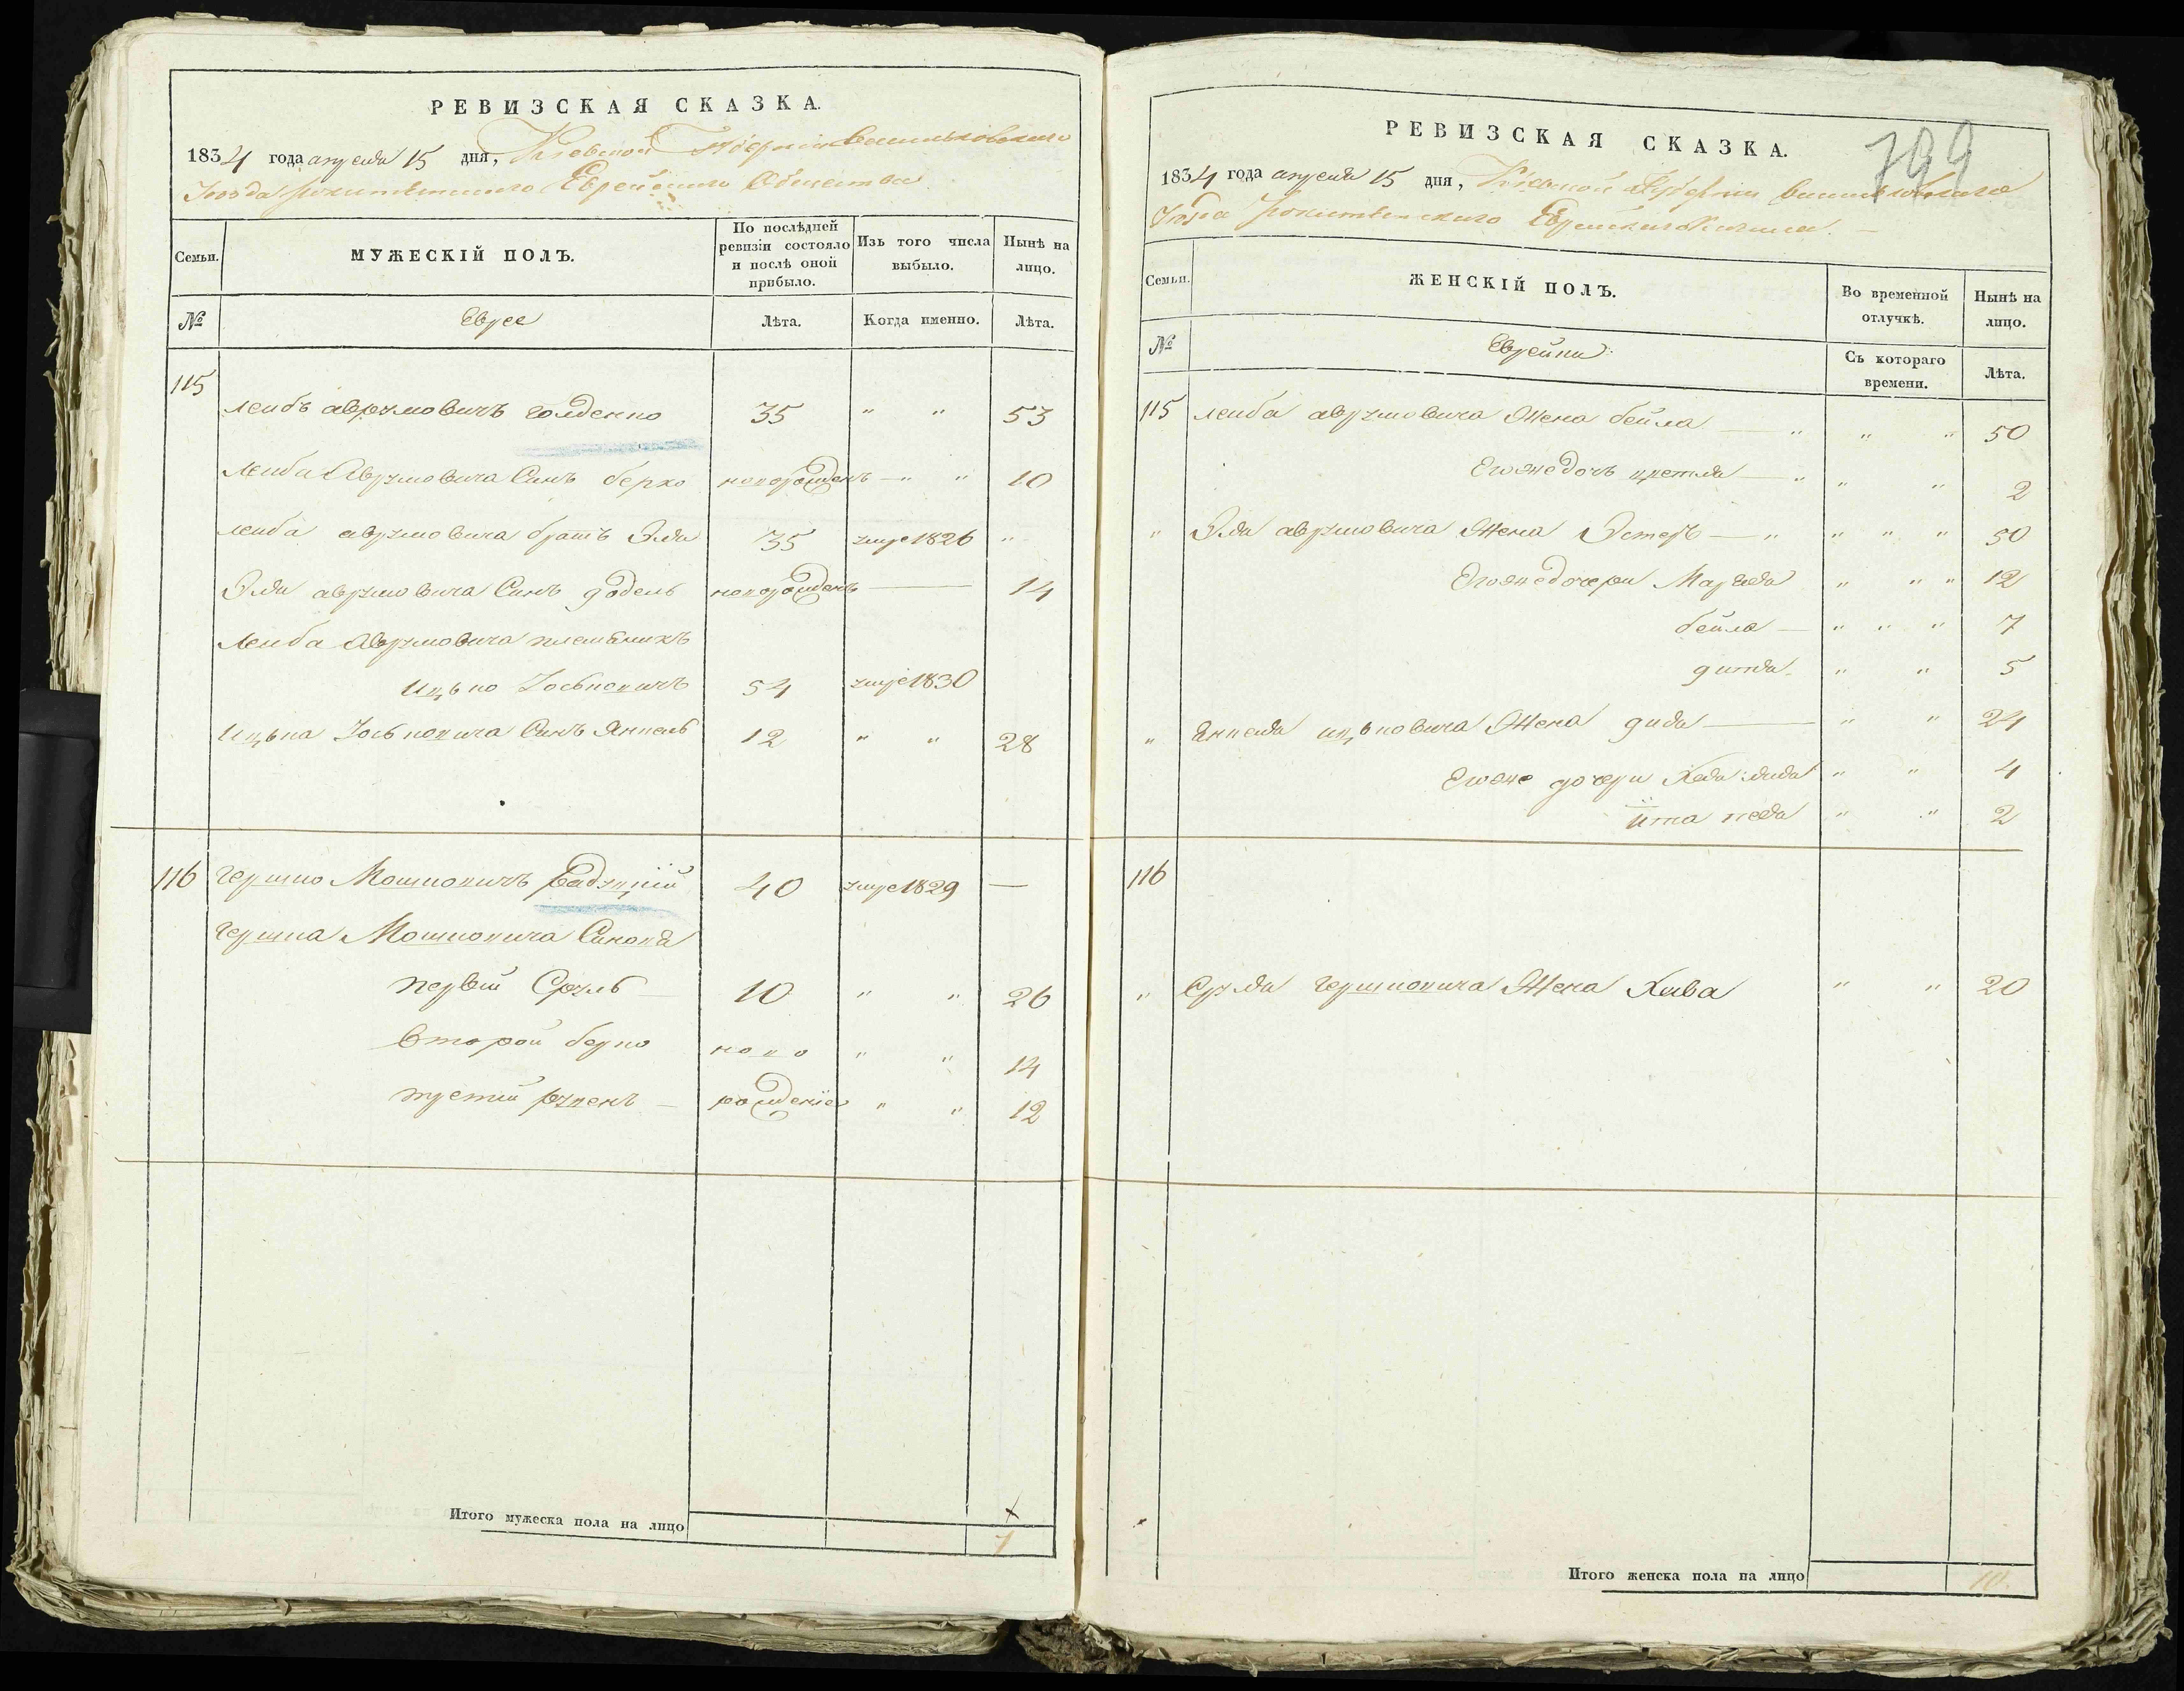 РЕВИЗСКАЯ СКАЗКА.
1834 года апреля 15 дня, Кіевской Губерніи Васильковскаго
Уезда Рокитянского Еврейского Общества
Семьи. МУЖЕСКІЙ ПОЛЪ. По послѣдней ревизіи состояло и послѣ оной прибыло. Изъ того числа выбыло. Нынѣ на лицо.
№ Еврее Лѣта. Когда именно. Лѣта.
115
Лейбъ аврумовичъ голденко 35 " " 53
Лейба Аврумовича Синъ берко новорожденъ — " " 10
Лейба аврумовича братъ Эля 35 умре 1826 "
Эля аврумовича Синъ додель новорожденъ — 14
Лейба Аврумовича племѣникъ
Ицько Йосьповичъ 54 умре 1830
Ицька Йосьповича Синъ Янкель 12 " " 28
116 Гершко Мошковичъ радуцкій 40 умре 1829 —
Гершка Мошковича Синовя
Первий Сруль — 10 " " 26
Второй берко ново " " 14
третий рувенъ — рожденіе " " 12
Итого мужеска пола на лицо 7
799
РЕВИЗСКАЯ СКАЗКА.
1834 года апреля 15 дня, Кіевской Губерніи Васильковскаго
Уезда Рокитянского Еврейского
Семьи. ЖЕНСКІЙ ПОЛЪ. Во временной отлучкѣ. Нынѣ на лицо.
№ Еврейки Съ котораго времени. Лѣта.
115 Лейба аврумовича Жена бейла — " " " 50
Егожедочь цретля — " " " 2
" Эля аврумовича Жена Эстеръ — " " " " 50
Егожедочери Маргеля " " " 12
бейла — " " " 7
гитля " " 5
" Янкеля ицьковича Жена гиля — " " 24
Егоже дочери Хая лиля " " 4
ита неля " " 2
116
" Сруля Гершковича Жена Хива " " 20
Итого женска пола на лицо 10.